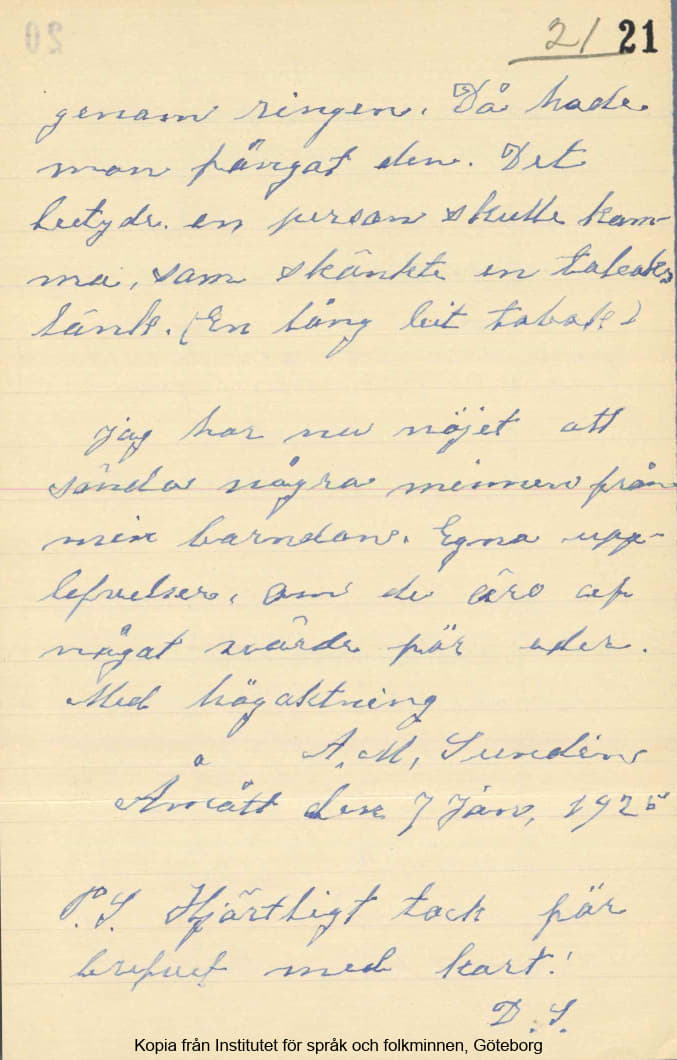 20
21 21
genom ringen. Då hade
man fångat den. Det
betyde. en person skulle kom-
ma, som skänkte en tobaks
länk. (En lång bit tobak)
jag har nu nöjet att
sända några minnen från
min barndom. Egna upp-
lefvelser, om de äro af
något värde för eder.
Med högaktning
A. M. Sundin
den 7 Jan, 1925
P.S. Hjärtligt tack för
brefvet med kort!
D.S.
Kopia från Institutet för språk och folkminnen, Göteborg